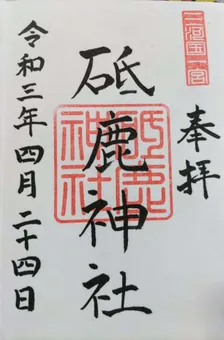 三河国一宮
奉拝
砥鹿神社
砥鹿神社
令和三年四月二十四日